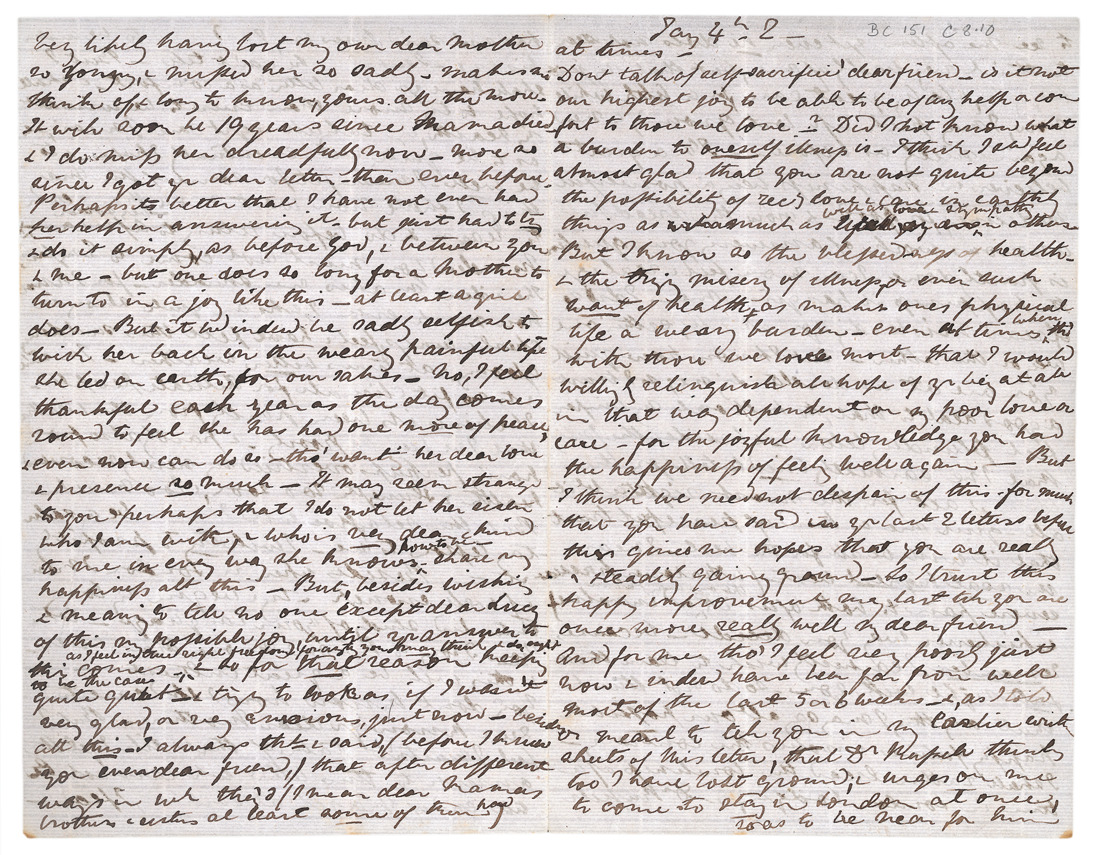 very likely having lost my own dear Mother
so young, & missed her so sadly - makes me
think of & long to know, yours all the more.
It will soon be 19 years since Mama died,
& I do miss her dreadfully now - more so
since I got yr dear letter - than ever before.
Perhaps its better that I have not even had
her help in answering it, but just had to try
& do it simply, as before God, & between you
& me - but one does so long for a Mother to
turn to in a joy like this - at least a girl
does - But it wd indeed be sadly selfish to
wish her back in the weary painful life
she led on earth, for our sakes - No, I feel
thankful each year as the day comes
round to feel she has had one more of peace,
& even now can do so - tho' want her dear love
& presence so much - It may seem strange
to you perhaps that I do not let her sister
who I am with, & who is very dear & kind
to me in every way she knows how to be, share my
happiness all this - But, besides wishing
& meaning to tell no one except dear Lucy
of this my possible joy, until yr answer to
this comes, as I feel in due right freedom for us both you may think & ought
to be the case, & so for that reason keeping
quite quiet - & trying to look as if I wasn't
very glad, or very anxious, just now - besides
all this - I always tht & said, (before I knew
you even dear friend,) that after different
ways in wh they'd (I mean dear Mamas
brothers & sisters at least some of them had
Jany 4th 2 -
BC 151 C-8-10
at times -
Dont talk of 'self-sacrifice' dear friend - is it not
our highest joy to be able to be of any help or com
fort to those we love -? Did I not know what
a burden to oneself illness is - I think I shd feel
almost glad that you are not quite beyond
the possibility of recg love & care in earthly
things as much as well as love & sympathy in others
But I know so the blessedness of health -
& the trying misery of illness, or even such
want of health, as makes ones physical
life a weary burden - even at times when tho
with those we love most - that I would
willingly relinquish all hope of yr being at all
in that way dependent on my poor love or
care - for the joyful knowledge you had
the happiness of feeling well again - But
I think we need not despair of this - for much
that you have said in yr last 2 letters before
this gives me hopes that you are really
& steadily gaining ground - So I trust this
happy improvement may last till you are
once more really well my dear friend -
And for me tho' I feel very poorly just
now & indeed have been far from well
most of the last 5 or 6 weeks - &, as I told
or meant to tell you in my earlier written
sheets of this letter, that Dr thinks
too I have lost ground, & urges on me
to come to stay in London at once,
so as to be near for him